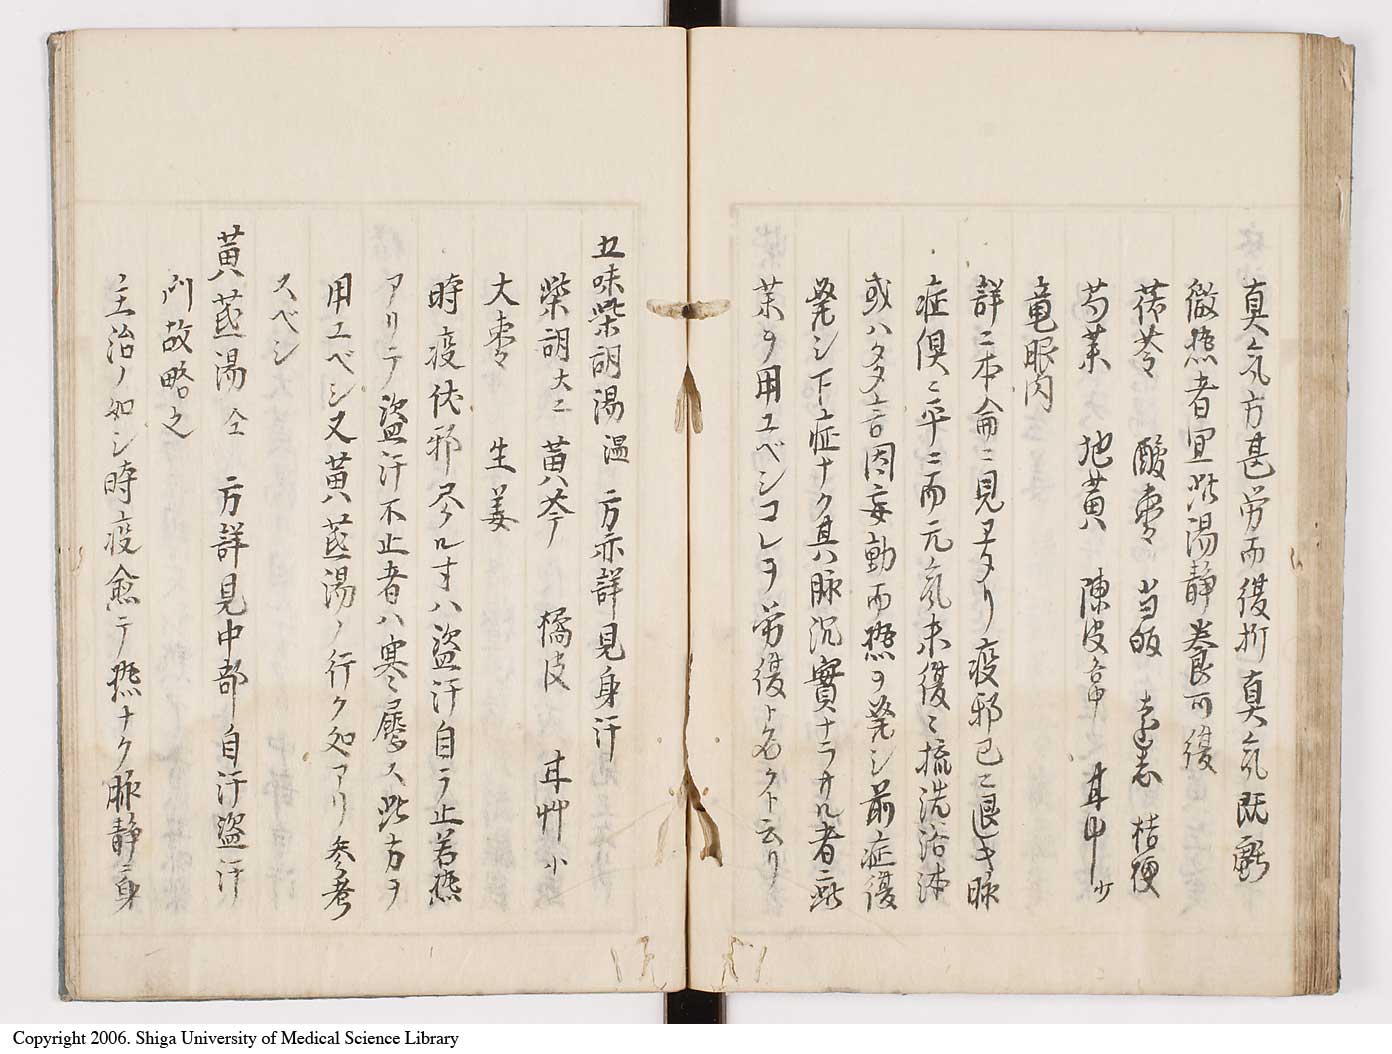 真気方甚労而復折真気既虧
微熱者宜此湯静養可復
茯苓 酸棗 当皈 遠志 桔梗
芍薬 地黄 陳皮各等 甘艸少
竜眼肉
詳ニ本侖ニ見ヱタリ疫邪已ニ退キ脉
症倶ニ平ニ而元気未復ニ梳洗沐浴
或ハ多言因妄動而熱ヲ発シ前症復
発シ下症ナク其ハ脉沉實ナラサル者此
薬ヲ用ユベシコレヲ労復ト名クト云リ
五味柴胡湯 温 方亦詳見身汗
柴胡大ニ 黄芩 橘皮 甘艸小
大棗 生姜
時疫伏邪尽ルオハ盗汗自ラ止若熱
アリテ盗汗不止者ハ寒ニ属ス此方ヲ
用エベシ又黄茋湯ノ行ク処アリ参考
スベシ
黄茋湯 仝 方詳見中部自汗盗汗
門故略之
主治ノ如シ時疫愈テ熱ナク脉静ニ身
Copyright 2006. Shiga University of Medical Science Library